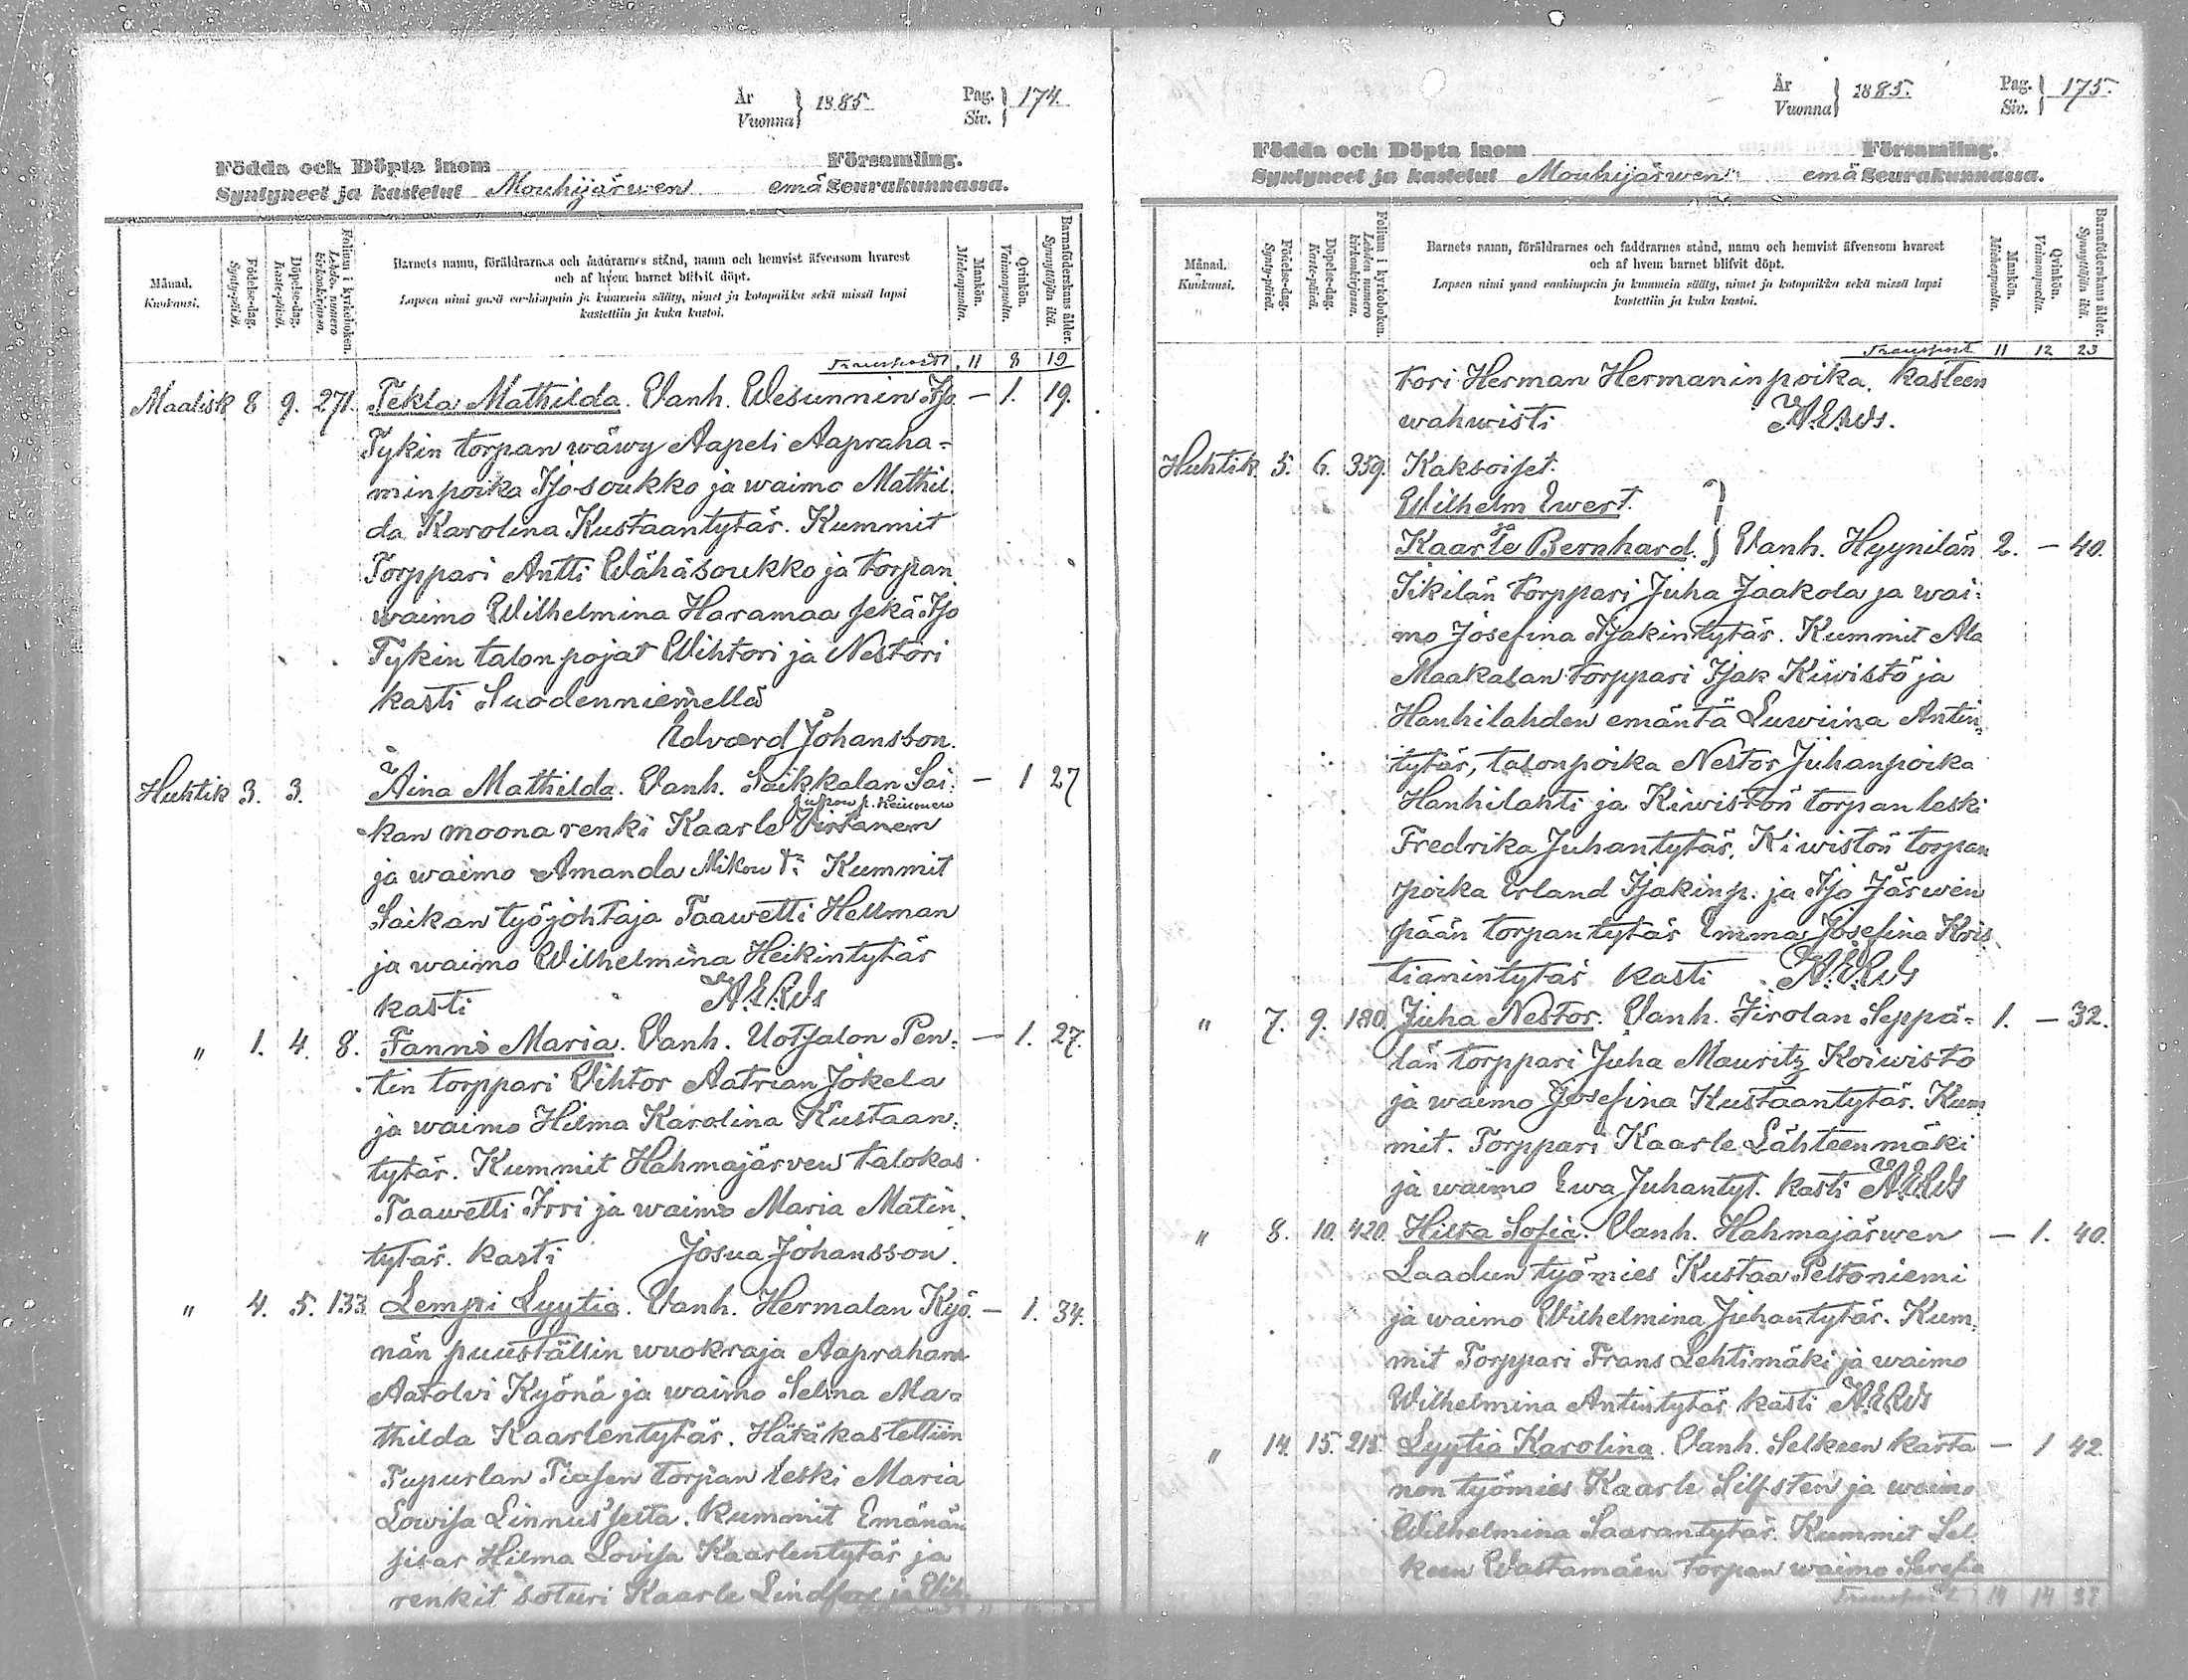 År
Vuonna } 1885.
Pag.
Siv. } 174.
Födda och Döpta inom Församling.
Syntyneet ja kastetut Mouhijärwen emä Seurakunnassa.
Månad.
Kuukausi.
Födelse-dag.
Synty-päivä.
Döpelse-dag.
Kaste-päivä.
Folium i kyrkoboken.
Lehden numero kirkonkirjassa.
Barnets namn, föräldrarnes och faddrarnes stånd, namn och hemvist äfvensom hvarest
och af hvem barnet blifvit döpt.
Lapsen nimi ynnä vanhimpain ja kummein sääty, nimet ja kotopaikka sekä missä lapsi
kastettiin ja kuka kastoi.
Mankön.
Miehenpuolta.
Qvinkön.
Vaimonpuolta.
Barnaföderskans ålder.
Synnyttäjän ikä.
Transport 11 8 19
Maalisk 8 9. 271. Tekla Mathilda. Vanh. Wesunnin Iso — 1. 19.
Tykin torpan wäwy Aapeli Aapraha=
minpoika Isosoukko ja waimo Mathil.
da Karolina Kustaantytär. Kummit
Torppari Antti Wähäsoukko ja torpan
waimo Wilhelmina Haramaa sekä Iso
Tykin talonpojat Wihtori ja Nestori
kasti Suodenniemellä
Edvard Johansson.
Huhtik 3. 3. Aina Mathilda. Vanh. Saikkalan Sai: — 1 27
kan moona renki Kaarle Virtanen
ja waimo Amanda Mikon tr Kummit
Saikan työjohtaja Taawetti Hellman
ja waimo Wilhelmina Heikintytär
kasti
" 1. 4. 8. Fanni Maria. Vanh. Uotsalon Pen: — 1. 27.
tin torppari Vihtor Aatrian Jokela
ja waimo Hilma Karolina Kustaan:
tytär. Kummit Hahmajärven talokas
Taawetti Irri ja waimo Maria Matin
tytär. kasti Josua Johansson.
" 4. 5. 133. Lempi Lyytia. Vanh. Hermalan Kyö. — 1. 34.
nän puuställin wuokraja Aapraham
Aatolvi Kyönä ja waimo Selma Ma=
thilda Kaarlentytär. Hätäkastettiin
Pupurlan Piasen torpan leski Maria
Lowisa Linnus'seita. Kummit Emänän
sisar Hilma Lovisa Kaarlentytär ja
renkit soturi Kaarle Lindfors ja Wih
År
Vuonna } 1885.
Pag.
Siv. } 175.
Födda och Döpta inom Församling.
Syntyneet ja kastetut Mouhijärwen emä Seurakunnassa.
Månad.
Kuukausi.
Födelse-dag.
Synty-päivä.
Döpelse-dag.
Kaste-päivä.
Folium i kyrkoboken.
Lehden numero kirkonkirjassa.
Barnets namn, föräldrarnes och faddrarnes stånd, namn och hemvist äfvensom hvarest
och af hvem barnet blifvit döpt.
Lapsen nimi ynnä vanhimpain ja kummein sääty, nimet ja kotopaikka sekä missä lapsi
kastettiin ja kuka kastoi.
Mankön.
Miehenpuolta.
Qvinkön.
Vaimonpuolta.
Barnaföderskans ålder.
Synnyttäjän ikä.
Transport 11 12 23
tori Herman Hermaninpoika. kasteen
wahwisti
Huhtik 5. 6. 359. Kaksoiset.
Wilhelm Ewert.
ja
Kaarle Bernhard. } Vanh. Hyynilän 2. — 40.
Iikilän torppari Juha Jaakola ja wai:
mo Josefina Isakintytär. Kummit Ala
Maakalan torppari Isak Kiwistö ja
Hanhilahden emäntä Luwiina Antin
tytär, talonpoika Nestor Juhanpoika
Hanhilahti ja Kiwistön torpan leski
Fredrika Juhantytär, Kiwistön torpan
poika Erland Isakinp. ja Iso Järwen
pään torpan tytär Emma Josefina Kris
tianintytär kasti
" 7. 9. 180. Juha Nestor. Vanh. Iirolan Seppä= 1. — 32.
län torppari Juha Mauritz Koiwisto
ja waimo Josefina Kustaantytär. Kum
mit. Torppari Kaarle Lähteenmäki
ja waimo Ewa Juhantyt. kasti
" 8. 10. 420. Hilta Sofia. Vanh. Hahmajärwen — 1. 40.
Laadun työmies Kustaa Peltoniemi
ja waimo Wilhelmina Juhantytär. Kum:
mit Torppari Frans Lehtimäki ja waimo
Wilhelmina Antintytär kasti
" 14. 15. 215. Lyytia Karolina. Vanh. Selkeen karta — 1 42.
non työmies Kaarle Silfsten ja waimo
Wilhelmina Saarantytär. Kummit Sel
keen Wastamäen torpan waimo Serafia
Transport 14 14 37